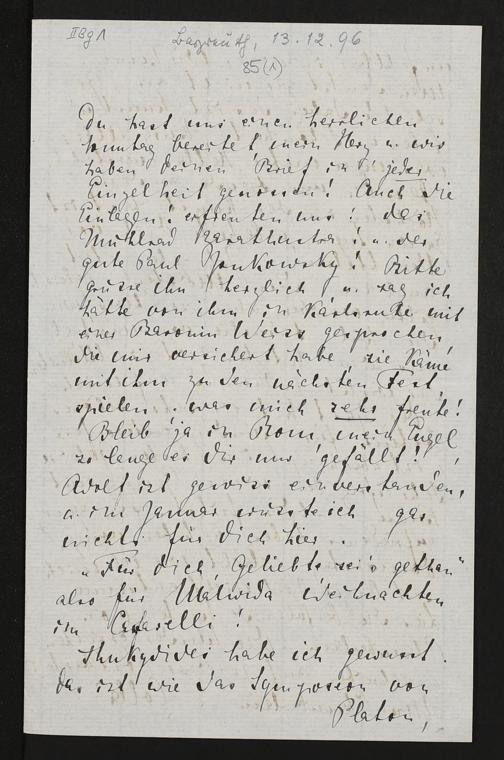 II Bg 1
Bayreuth, 13.12.96
85(1)
Du hast uns einen herrlichen
Sonntag bereitet mein Herz u. wir
haben deinen Brief in jeder
Einzelheit genossen! Auch die
Einlagen! erfreuten uns! das
Mühlrad Zarathustra! u. der
gute Paul Joukowsky! Bitte
grüsse ihn herzlich u. sag ich
hätte von ihm in Karlsruhe mit
einer Baronin Weiss gesprochen,
die mir versichert habe sie käme
mit ihm zu den nächsten Fest
spielen. was mich sehr freute!
Bleib ja in Rom, mein Engel
so lange es dir nur gefällt!
Adolf ist gewiss einverstanden,
u. im Januar wüsste ich gar
nichts für dich hier.
„Für dich Geliebte sei's gethan"
also für Malwida Weihnachten
im Cafarelli!
Thukydides habe ich gewusst.
das ist wie das Symposion von
Platon,